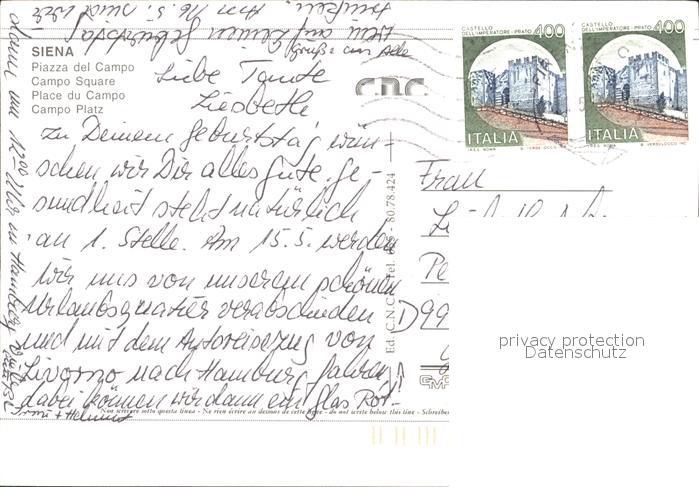 SIENA
Piazza del Campo
Campo Square
Place du Campo
Campo Platz
C.N.C.
Liebe Tante
Liesbeth
zu Deinem Geburtstag wün-
schen wir Dir alles Gute. Ge-
sundheit steht natürlich
an 1. Stelle. Am 15.5. werden
wir uns von unserem schönen
Urlaubsquartier verabschieden
und mit dem Autoreisezug von
Livorno nach Hamburg fahren!
dabei können wir dann ein Glas Rot-
wein auf Deinen Geburtstag
trinken! Am 16.5. sind wir
dann um 12 00 Uhr in Hamburg
Grüße an alle
Irmi + Helmut
Non scrivere sotto questa linea - Ne rien écrire au dessous de cette ligne - do not write below this line - Schreiben
Ed. C.N.C. Tel. 80.78.424
Frau
D 99
CASTELLO DELL'IMPERATORE - PRATO 400
ITALIA
CASTELLO DELL'IMPERATORE - PRATO 400
ITALIA
privacy protection
Datenschutz